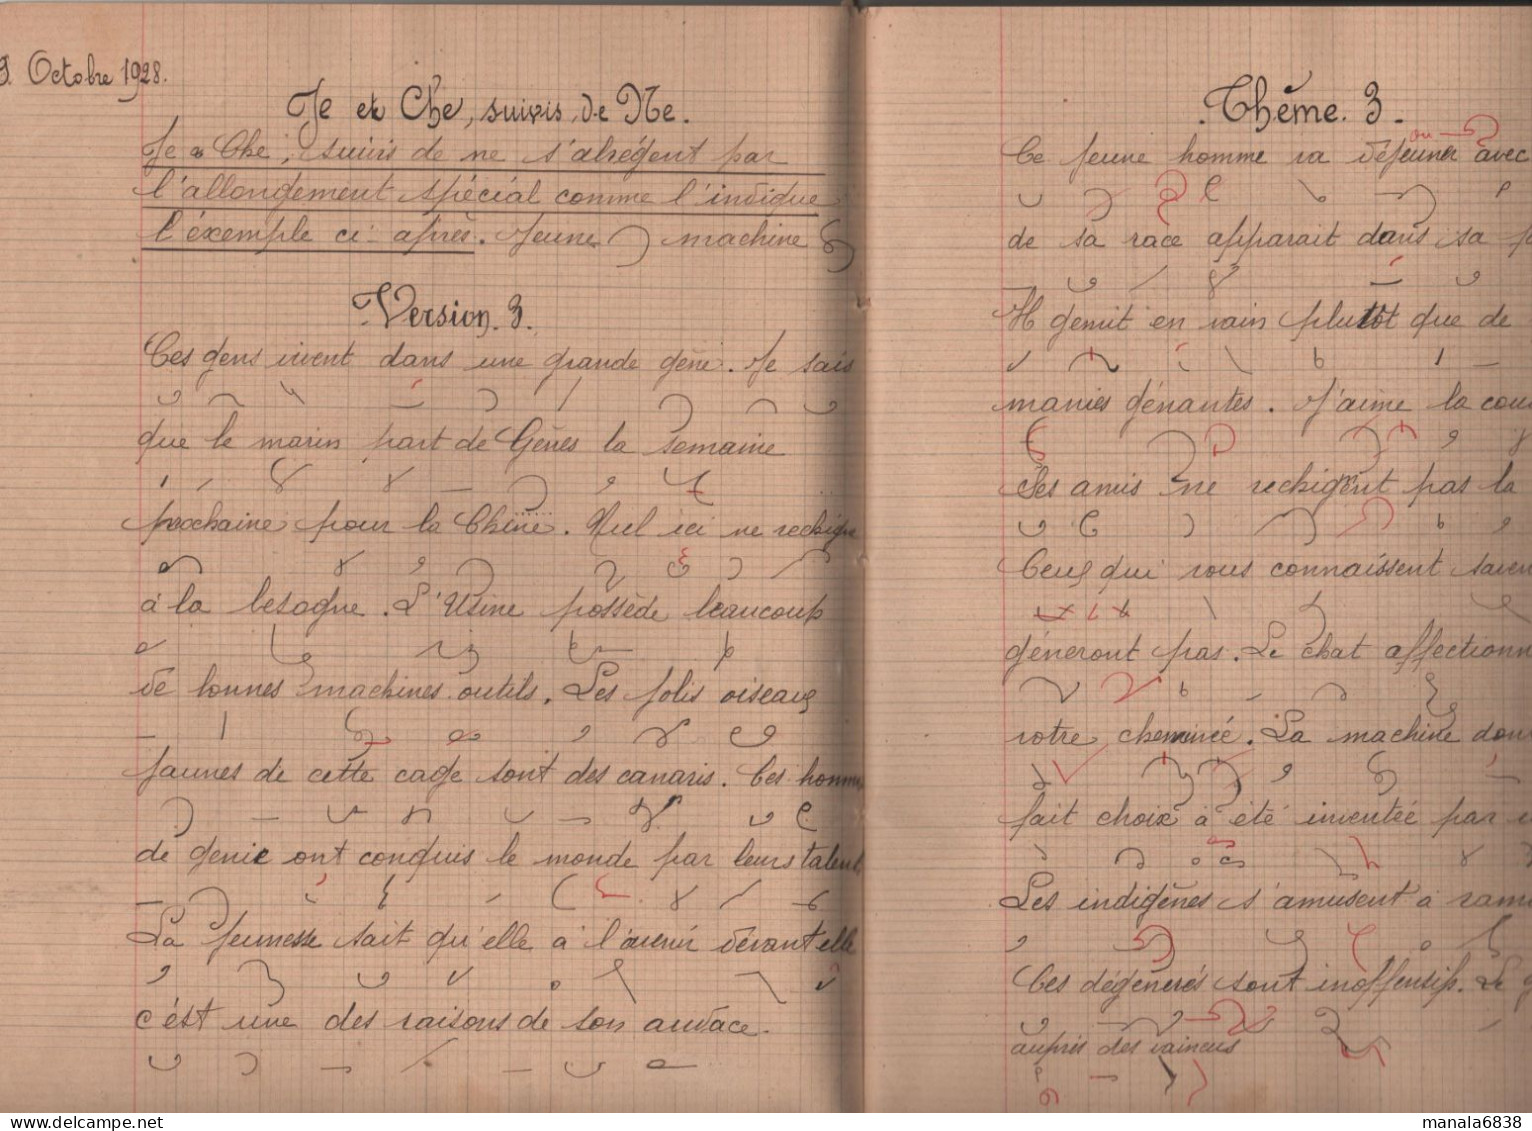 9. Octobre 1928.
Je et Che, suivis, de Ne.
Je & Che, suivis de ne s'abrégent par
l'allongement spécial comme l'indique
l'éxemple ci-après. Jeune machine
Version. 3.
Ces gens vivent dans une grande gêne. Je sais
que le marin part de Gênes la semaine
prochaine pour la Chine. Nul ici ne rechigne
à la besogne. L'Usine possède beaucoup
de bonnes machines-outils. Les jolis oiseaux
jaunes de cette cage sont des canaris. Ces homm
de génie ont conquis le monde par leurs talent
La jeunesse sait qu'elle a l'avenir devant elle
c'ést une des raisons de son audace.
Thême. 3.
ou
Ce jeune homme va déjeuner avec
de sa race apparait dans sa p
Il gémit en vain plutôt que de
manies gênantes. J'aime la cou
Ses amis ne rechignent pas la
Ceux qui vous connaissent saven
géneront pas. Le chat affectionn
votre cheminée. La machine don
fait choix à été inventée par
Les indigênes s'amusent à ram
Ces dégénerés sont inoffensifs. Le g
auprès des vaincus
manala6838